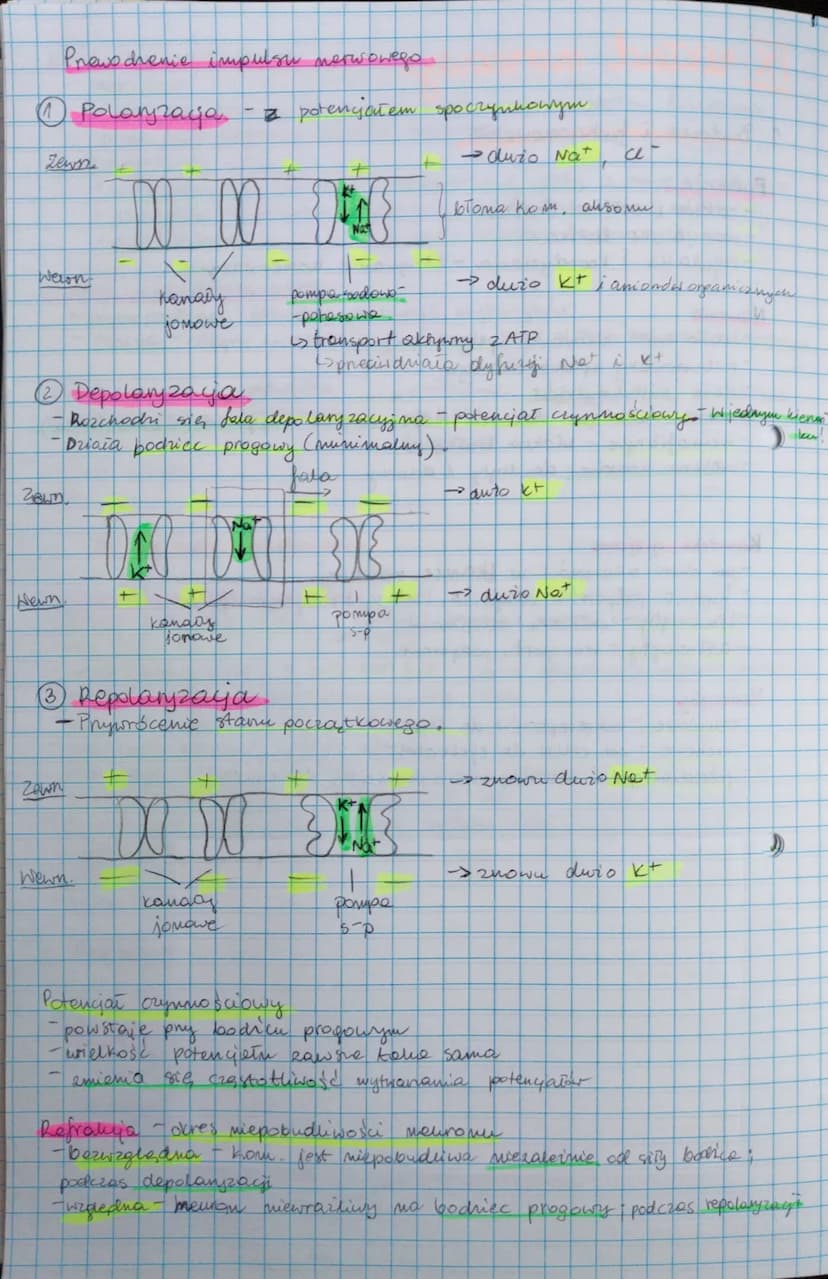 Przewodzenie impulsu nerwowego
① Polaryzacja - z potencjałem spoczynkowym
Zewn. + + + + + → dużo Na⁺, Cl⁻
K⁺
Na⁺
błona kom. aksonu
Wewn. - - - - - → dużo K⁺ i anionów organicznych
kanały jonowe
pompa sodowo-
-potasowa
↳ transport aktywny z ATP
↳ przeciwdziała dyfuzji Na⁺ i K⁺
② Depolaryzacja
- Rozchodzi się fala depolaryzacyjna - potencjał czynnościowy - w jednym kierun
ku!
- Działa bodziec progowy (minimalny).
fala
Zewn. - - - - → dużo K⁺
Na⁺
K⁺
Wewn. + + + + → dużo Na⁺
kanały jonowe
pompa s-p
③ Repolaryzacja
- Przywrócenie stanu początkowego.
Zewn. + + + + → znowu dużo Na⁺
K⁺
Na⁺
Wewn. - - - - → znowu dużo K⁺
kanały jonowe
pompa s-p
Potencjał czynnościowy
- powstaje przy bodźcu progowym
- wielkość potencjału zawsze taka sama
- zmienia się częstotliwość wytwarzania potencjałów
Refrakcja - okres niepobudliwości neuronu
- bezwzględna - kom. jest niepobudliwa niezależnie od siły bodźca;
podczas depolaryzacji
- względna - neuron niewrażliwy na bodziec progowy; podczas repolaryzacji